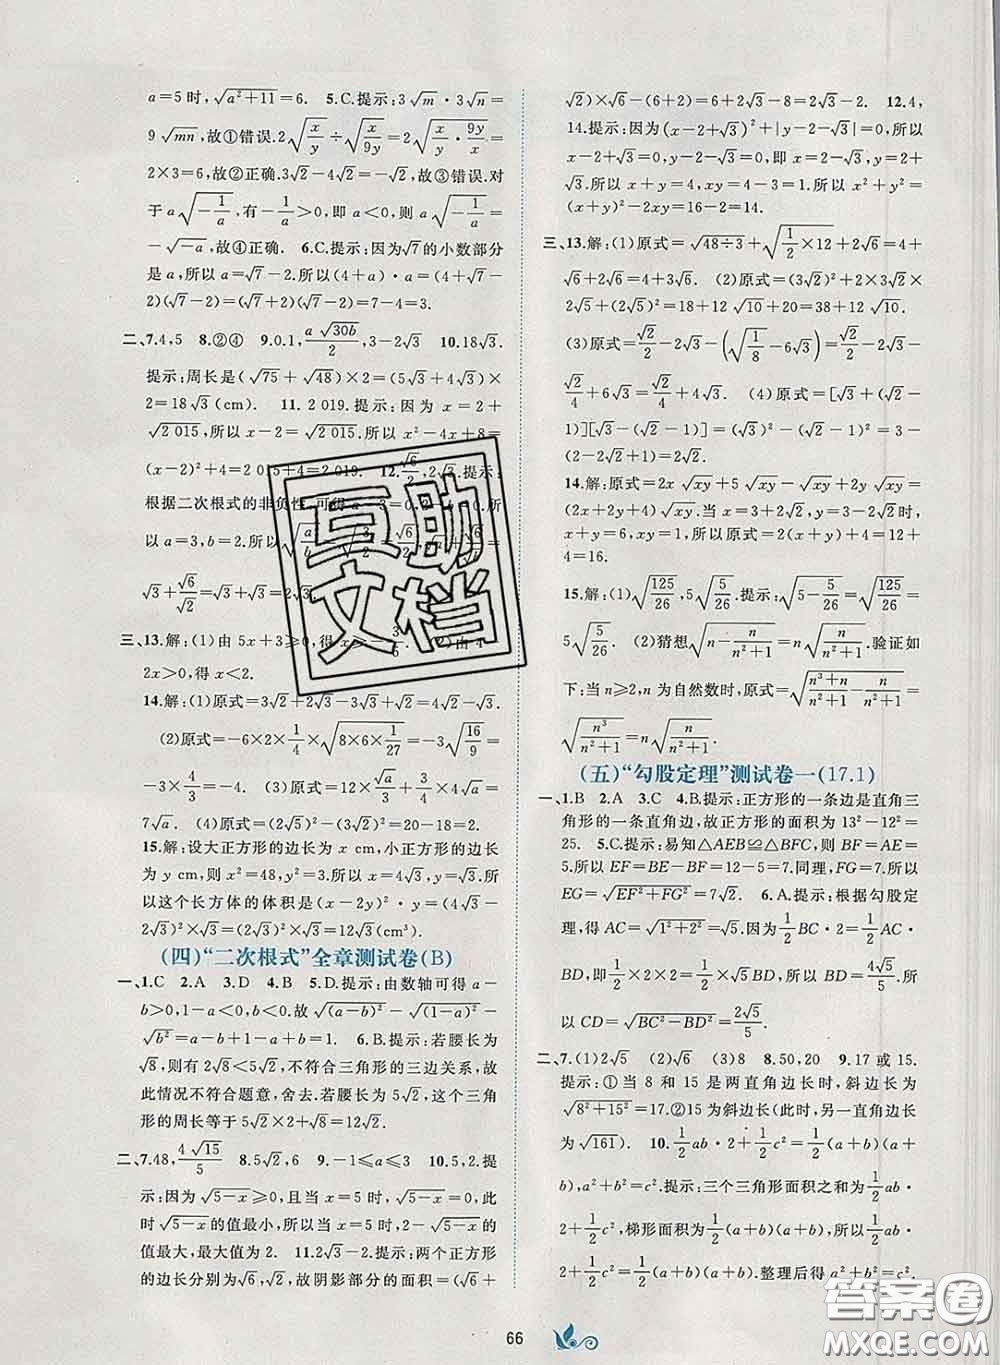 a=5时,√(a²+11)=6. 5.C.提示:3√m·3√n=
9√mn,故①错误.2√(x/y)÷√(x/9y)=2√(x/y·9y/x)=
2×3=6,故②正确.3√2-4√2=-√2,故③错误.对
于a√(-1/a),有-1/a>0,即a<0,则a√(-1/a)=
-√-a,故④正确. 6.C.提示:因为√7的小数部分
是a,所以a=√7-2.所以(4+a)·a=(4+√7-
2)(√7-2)=(√7+2)(√7-2)=7-4=3.
二、7.4,5 8.②④ 9.0.1,a√30b/2,3-2√3 10.18√3.
提示:周长是(√75+√48)×2=(5√3+4√3)×
2=18√3(cm). 11.2 019.提示:因为x=2+
√2 015,所以x-2=√2 015.所以x²-4x+8=
(x-2)²+4=2 015+4=2 019. 12.√6/2,2√3.提示:
根据二次根式的非负性,可得a-3=0,2-b=0.所
以a=3,b=2.所以√(a/b)=√(3/2)=√6/2,
√3+√6/√2=√3+√3=2√3.
三、13.解:(1)由5x+3≥0,得x≥-3/5. (2)由4-
2x>0,得x<2.
14.解:(1)原式=3√2+2√3-2√3+√2=4√2-√3.
(2)原式=-6×2×1/4×√(8×6×1/27)=-3√(16/9)
=-3×4/3=-4. (3)原式=2√a-√a+6√a=
7√a. (4)原式=(2√5)²-(3√2)²=20-18=2.
15.解:设大正方形的边长为x cm,小正方形的边长
为y cm,则x²=48,y²=3,所以x=4√3,y=√3.所
以这个长方体的体积是(x-2y)²·y=(4√3-
2√3)²×√3=(2√3)²×√3=12√3(cm³).
(四)“二次根式”全章测试卷(B)
一、1.C 2.A 3.D 4.B 5.D.提示:由数轴可得a-
b>0,1-a<0,b<0.故√(a-b)²-√(1-a)²-
√b²=a-b+1-a+b=1. 6.B.提示:若腰长为
√8,则有2√8<5√2,不符合三角形的三边关系,故
此情况不符合题意,舍去.若腰长为5√2,这个三角
形的周长等于5√2×2+√8=12√2.
二、7.48,4√15/5 8.5√2,6 9.-1≤a≤3 10.5,2.提
示:因为√5-x≥0,所以当√5-x=0,即x=5
时,√5-x的值最小,所以当x=1时,√5-x的
值最大,最大值为2. 11.2√3-2.提示:两个正方形
的边长分别为√6,√2,故阴影部分的面积=(√6+
√2)×√6-(6+2)=6+2√3-8=2√3-2. 12.4,
14.提示:因为(x-2+√3)²+|y-2-√3|=0,所以
x-2+√3=0,y-2-√3=0,即x=2-√3,y=2+
√3.所以x+y=4,xy=4-3=1.所以x²+y²=
(x+y)²-2xy=16-2=14.
三、13.解:(1)原式=√48÷3+√(1/2×12)+2√6=4+
√6+2√6=4+3√6. (2)原式=(3√2)²+2×3√2×
2√5+(2√5)²=18+12√10+20=38+12√10.
(3)原式=√2/2-2√3-(√(1/8)-6√3)=√2/2-2√3-
√2/4+6√3=√2/4+4√3. (4)原式=[√3+(√2-
1)][√3-(√2-1)]=(√3)²-(√2-1)²=3-(2-
2√2+1)=2√2.
14.解:原式=2x√xy+5√xy-√xy+2y√xy=
(2x+2y+4)√xy.当x=3+2√2,y=3-2√2时,
x+y=6,xy=1,所以原式=2(x+y)+4=12+
4=16.
15.解:(1)√(125/26),5√(5/26),√(5-5/26)=√(125/26)=
5√(5/26). (2)猜想√(n-n/(n²+1))=n√(n/(n²+1)).验证如
下:当n≥2,n为自然数时,原式=√((n³+n-n)/(n²+1))=
√(n³/(n²+1))=n√(n/(n²+1)).
(五)“勾股定理”测试卷一(17.1)
一、1.B 2.A 3.C 4.B.提示:正方形的一条边是直角三
角形的一条直角边,故正方形的面积为13²-12²=
25. 5.C.提示:易知△AEB≌△BFC,则BF=AE=
5.所以EF=BE-BF=12-5=7;同理,FG=7;所以
EG=√(EF²+FG²)=7√2. 6.A.提示:根据勾股定
理,得AC=√(1²+2²)=√5.因为1/2BC·2=1/2AC·
BD,即1/2×4×2=1/2×√5BD,所以BD=4√5/5.所
以CD=√(BC²-BD²)=2√5/5.
二、7.(1)2√5 (2)√6 (3)8 8.50,20 9.17或15.
提示:①当8和15是两直角边长时,斜边长为
√(8²+15²)=17.②15为斜边长(此时,另一直角边长
为√161). 10.1/2ab·2+1/2c²=1/2(a+b)(a+
b),a²+b²=c².提示:三个三角形面积之和为1/2ab·
2+1/2c²,梯形面积为1/2(a+b)(a+b),所以1/2ab·
2+1/2c²=1/2(a+b)(a+b).整理后得a²+b²=c².
66
互助
文档
答案圈
MXQE.COM